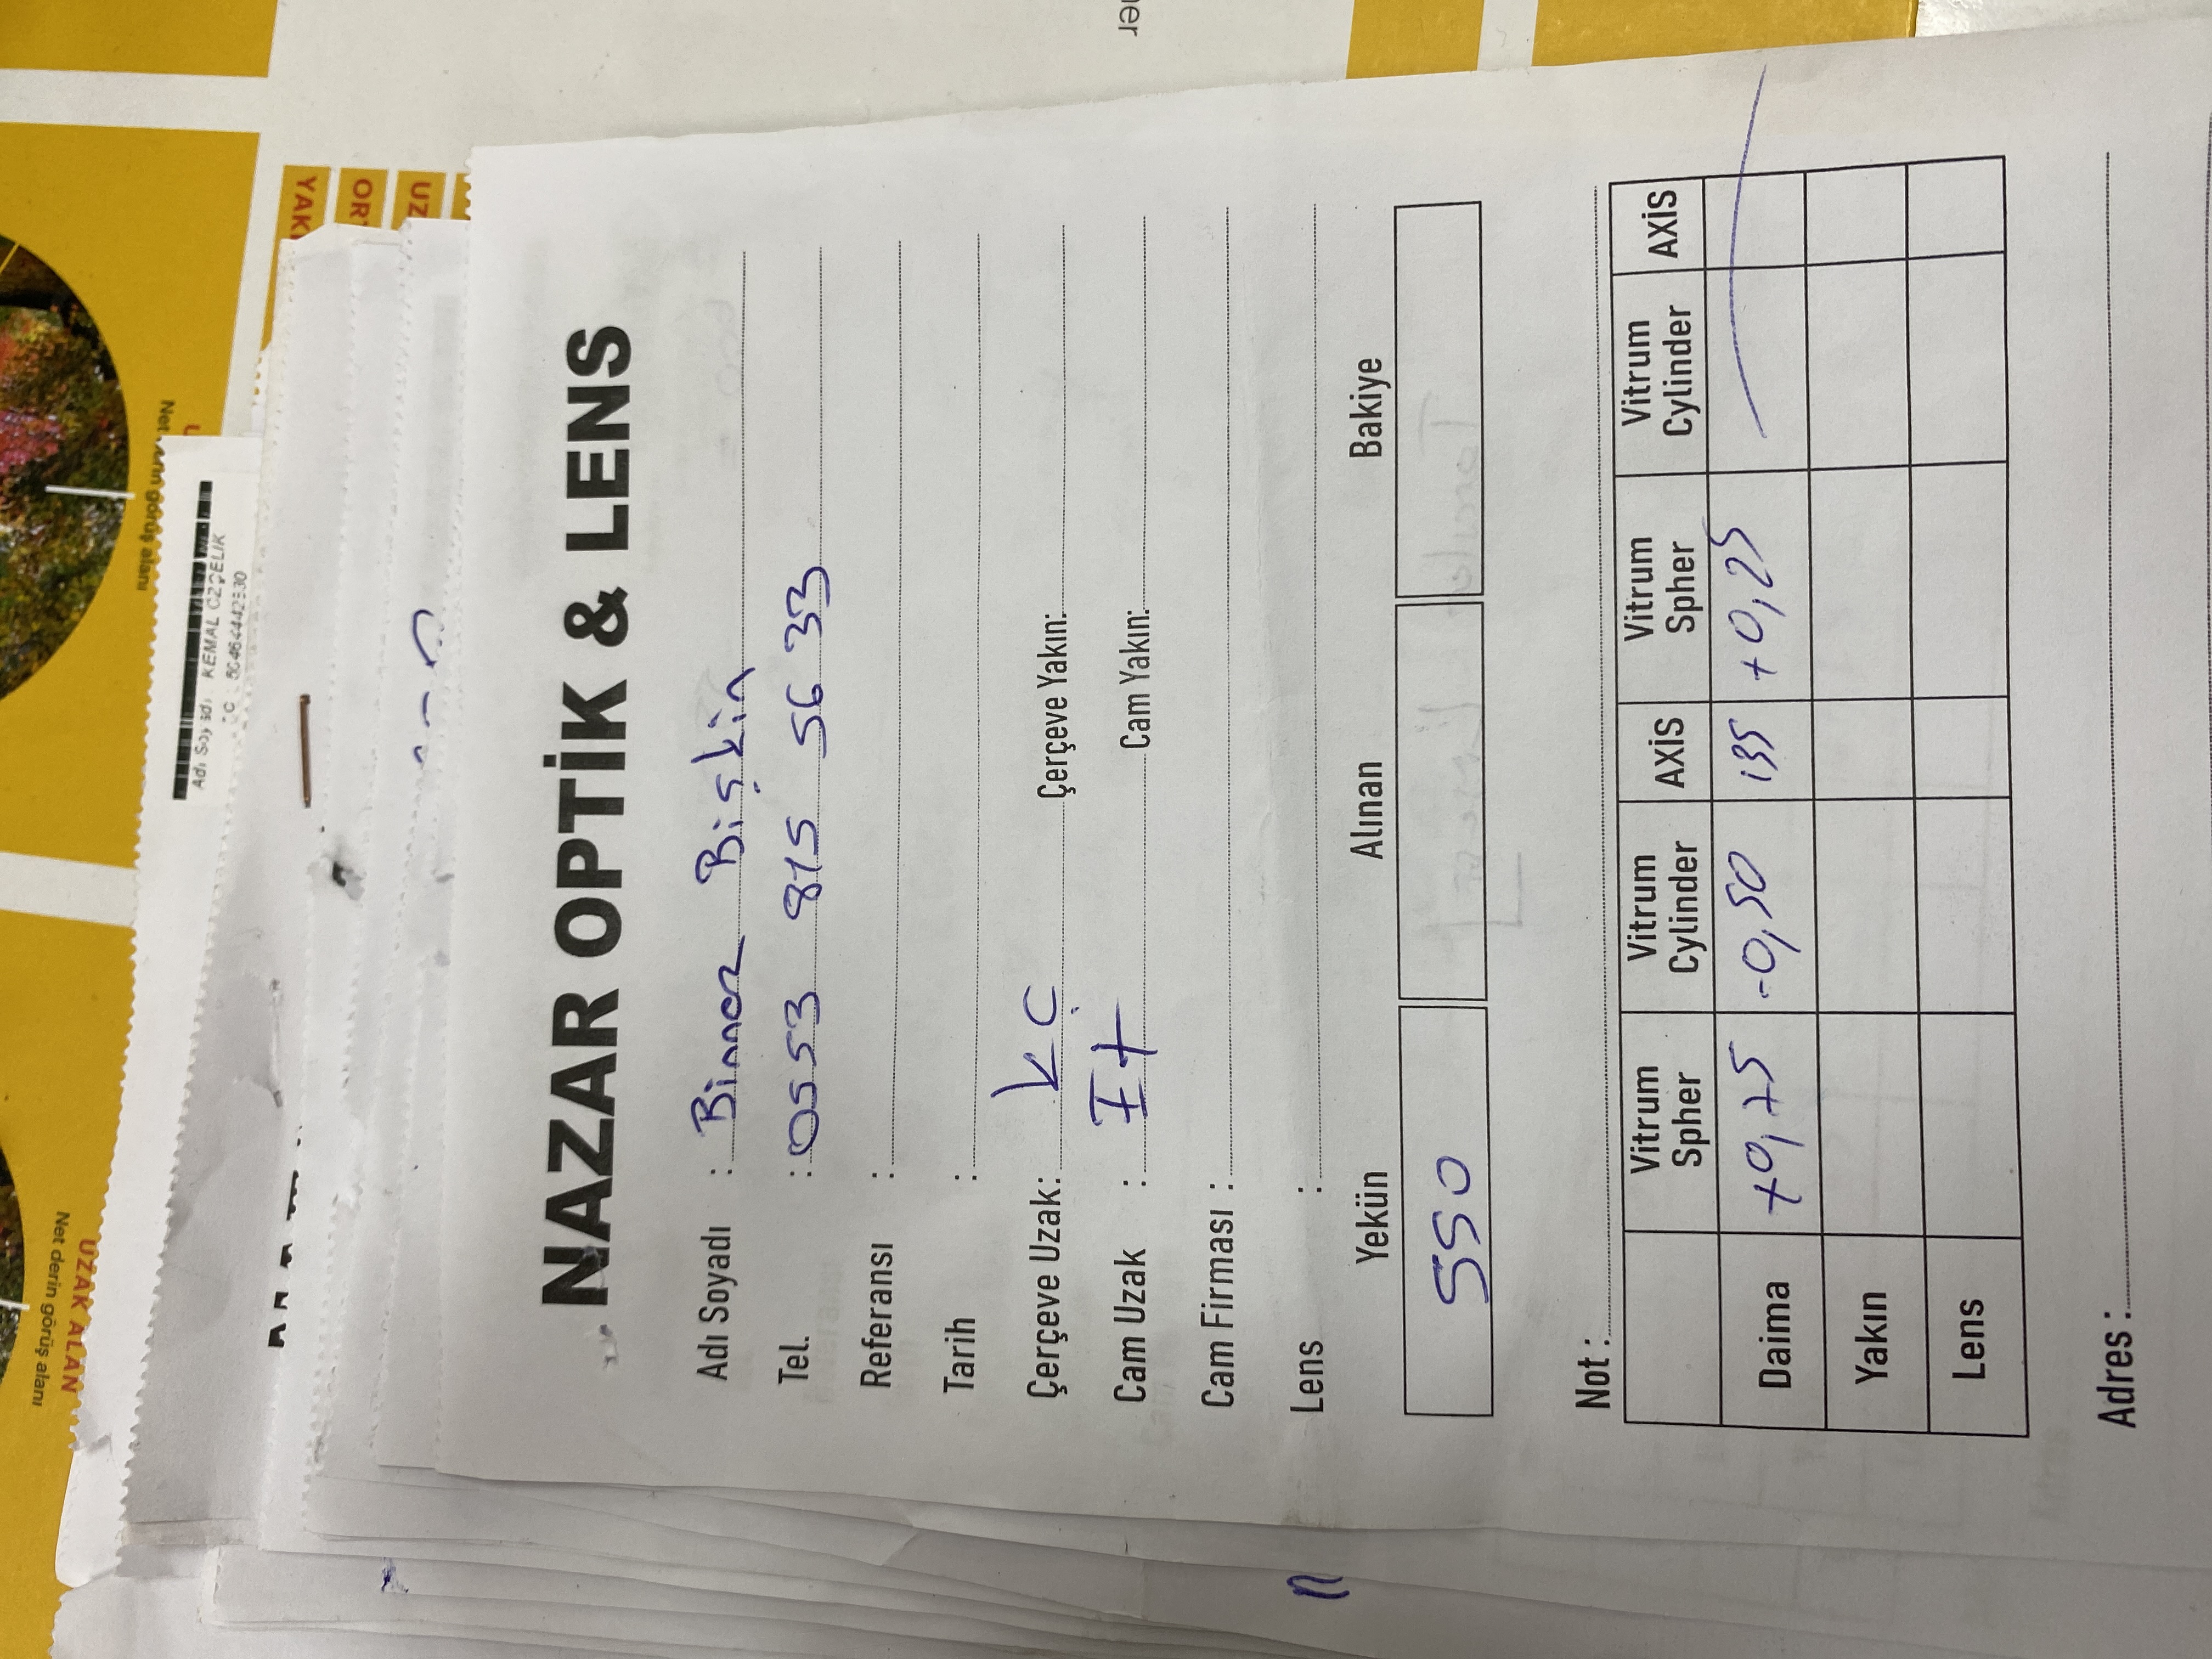 Net derin görüş alanı
UZAK ALAN
Adı Soyadı: KEMAL ÖZÇELİK
YAKI
OR
UZ
NAZAR OPTİK & LENS
Adı Soyadı : Binnaz Bişkin
Tel. : 0553 815 56 33
Referansı :
Tarih :
Çerçeve Uzak: KÇ Çerçeve Yakın:
Cam Uzak : I+ Cam Yakın:
Cam Firması :
Lens :
Yekün Alınan Bakiye
550
Not :
Vitrum Spher Vitrum Cylinder AXİS Vitrum Spher Vitrum Cylinder AXİS
Daima +0,75 -0,50 135 +0,25
Yakın
Lens
Adres :